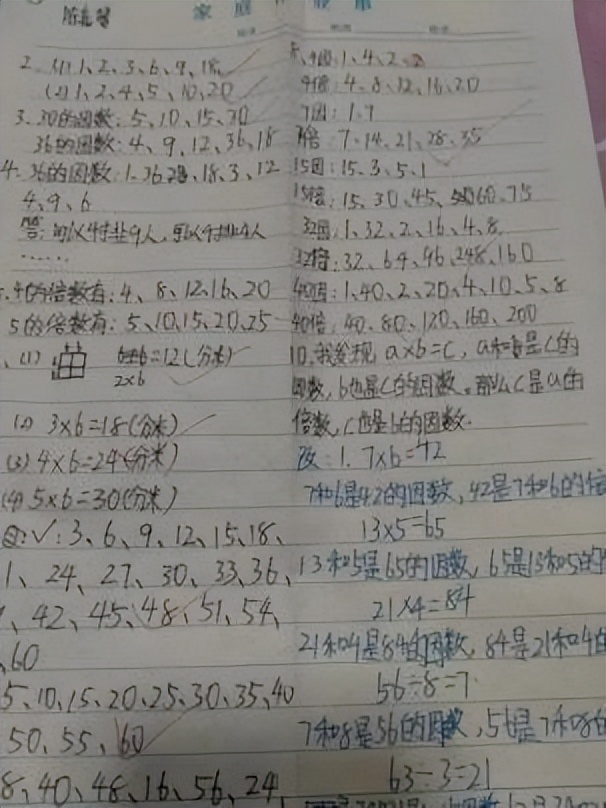 家庭作业
2. (1) 1、2、3、6、9、18
(2) 1、2、4、5、10、20
3. 30的因数: 5、10、15、30
36的因数: 4、9、12、36、18
4. 36的因数: 1、36、18、3、12
4、9、6
答: 可以4排9人,可以9排4人
……
4的倍数有: 4、8、12、16、20
5的倍数有: 5、10、15、20、25
、(1) 6+6=12(分米)
2×6
(2) 3×6=18(分米)
(3) 4×6=24(分米)
(4) 5×6=30(分米)
√: 3、6、9、12、15、18、
1、24、27、30、33、36、
、42、45、48、51、54、
、60
5、10、15、20、25、30、35、40
50、55、60
8、40、48、16、56、24
4因: 1、4、2
4倍: 4、8、12、16、20
7因: 1、7
7倍: 7、14、21、28、35
15因: 15、3、5、1
15倍: 15、30、45、60、75
32因: 1、32、2、16、4、8
32倍: 32、64、96、248、160
40因: 1、40、2、20、4、10、5、8
40倍: 40、80、120、160、200
10. 我发现 a×b=c, a和b是c的
因数, b也是c的因数。那么c是a的
倍数, c也是b的因数.
改: 1. 7×6=42
7和6是42的因数, 42是7和6的倍
13×5=65
13和5是65的因数, 65是13和5的
21×4=84
21和4是84的因数, 84是21和4的
56÷8=7
7和8是56的因数, 56是7和8的
63÷3=21